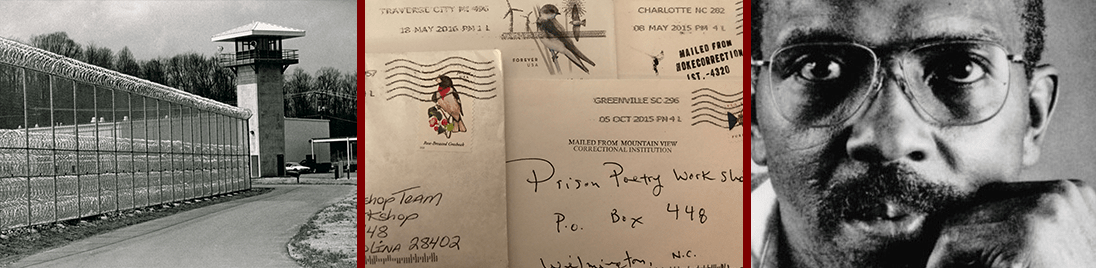 TRAVERSE CITY MI 496
18 MAY 2016 PM 4 L
FOREVER
USA
CHARLOTTE NC 282
08 MAY 2015 PM 4 L
MAILED FROM
HOKECORRECTION
IST.-4320
Rose-Breasted Grosbeak
GREENVILLE SC 296
05 OCT 2015 PM 4 L
MAILED FROM MOUNTAIN VIEW
CORRECTIONAL INSTITUTION
Prison Poetry Work Sho
P.O. Box 448
Wilmington, N.C.
shop Team
kshop
48
OLINA 28402